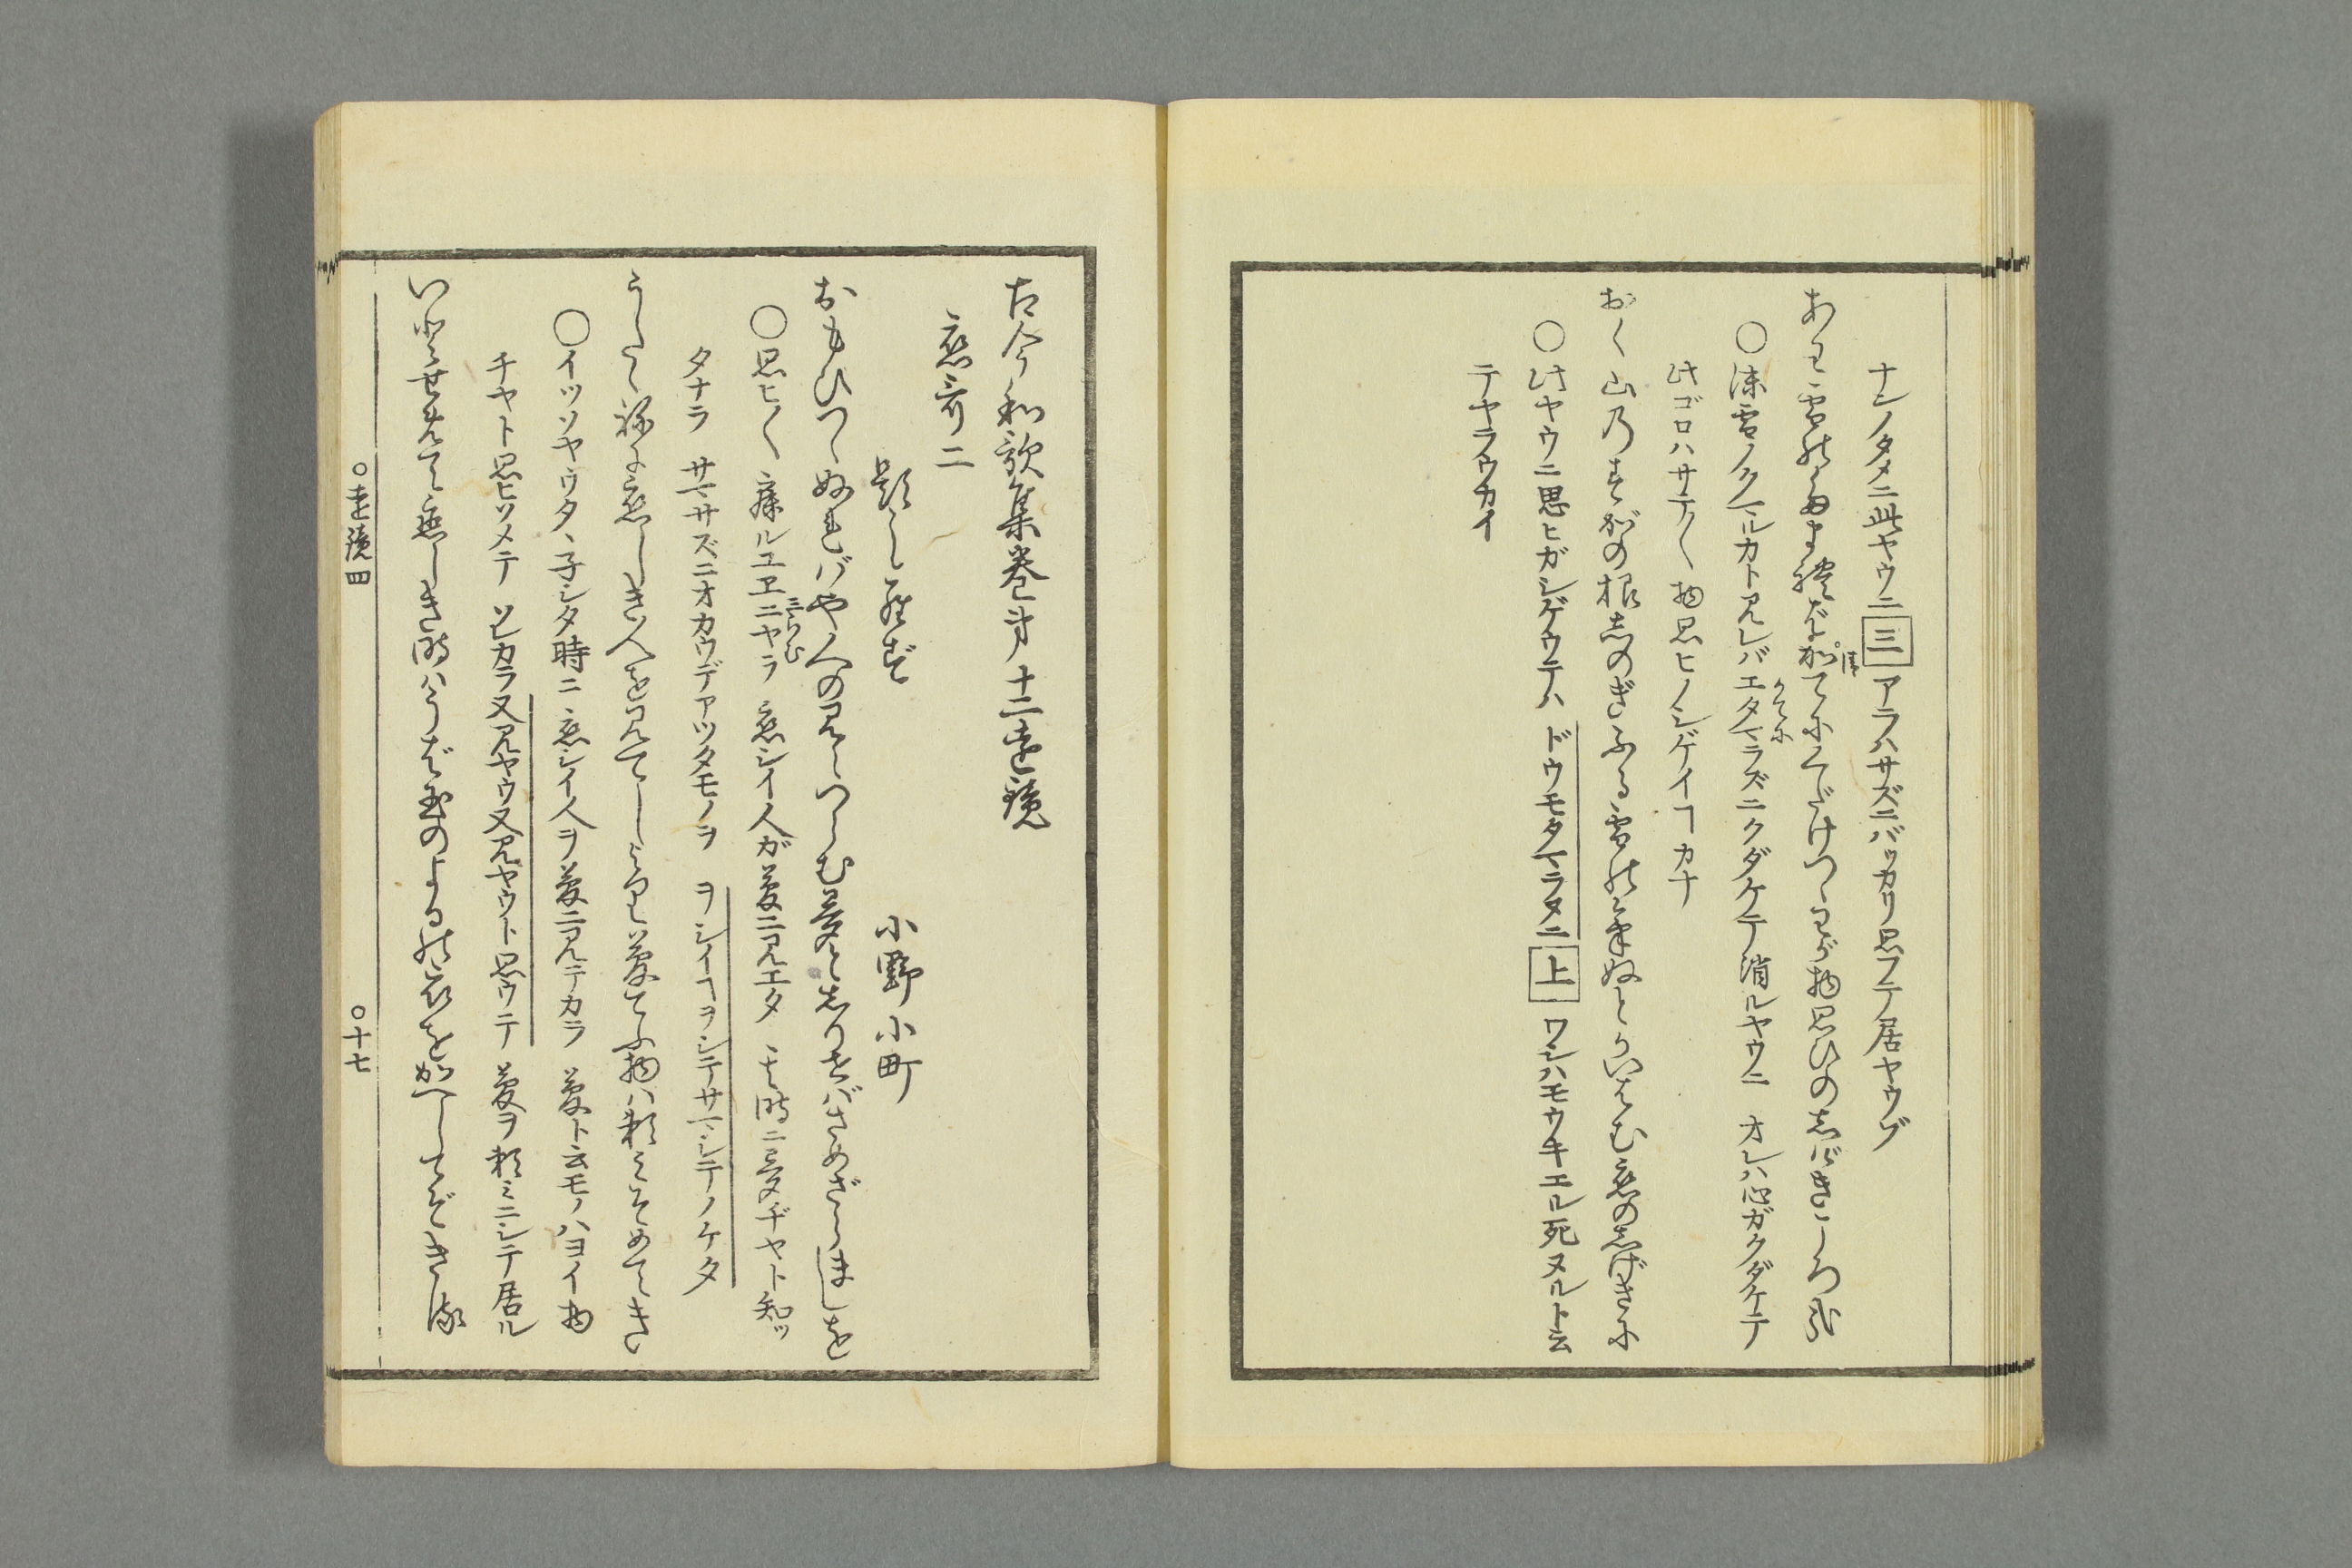 ナシノタメニ此ヤウニ三アラハサズニバッカリ思フテ居ヤウゾ
あわ雪のたまればかてにくだけつゝわが物思ひのしげきころ哉
○沫雪ノタマルカト見レバエタマラズニクダケテ消ルヤウニ オレハ心ガクダケテ
かてに
此ゴロハサテ〳〵物思ヒノシゲイヿカナ
おく山のすがの根しのぎふる雪のけぬとかいはむ恋のしげきに
○此ヤウニ思ヒガシゲウテハ ドウモタマラヌニ上 ワシハモウキエル死ヌルト云
テヤラウカイ
古今和歌集巻第十二遠鏡
恋哥二
題しらず
小野小町
おもひつゝぬればや人の見えつらむ夢としりせばさめざらましを
○思ヒ〳〵寐ルユヱニヤラ 恋シイ人ガ夢ニ見エタ 其時ニ夢ヂヤト知ッ
らむ
タナラ サマサズニオカウデアツタモノヲ ヲシイヿヲシテサマシテノケタ
うたゝねに恋しき人を見てしより夢てふ物は頼みそめてき
○イッソヤウタヽネシタ時ニ 恋シイ人ヲ夢ニ見テカラ 夢ト云モノハヨイ物
チヤト思ヒツメテ ソレカラ又見ヤウ又見ヤウト思ウテ 夢ヲ頼ミニシテ居ル
いとせめて恋しき時はうば玉のよるの衣をかへしてぞきる
○遠鏡四
○十七